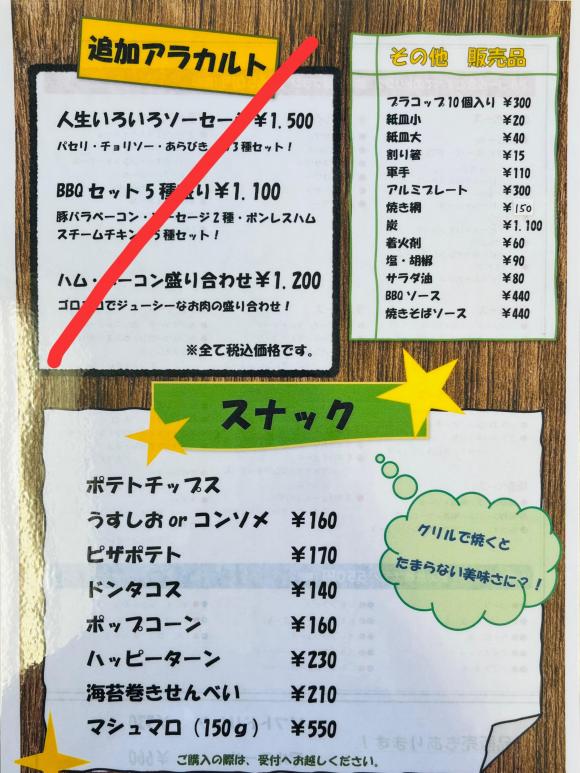 追加アラカルト
人生いろいろソーセー ¥1,500
パセリ・チョリソー・あらびき 3種セット！
BBQセット5種盛り¥1,100
豚バラベーコン・ ーセージ2種・ボンレスハム
スチームチキン 5種セット！
ハム・ ーコン盛り合わせ¥1,200
ゴロ ロでジューシーなお肉の盛り合わせ！
※全て税込価格です。
その他 販売品
プラコップ10個入り ¥300
紙皿小 ¥20
紙皿大 ¥40
割り箸 ¥15
軍手 ¥110
アルミプレート ¥300
焼き網 ¥150
炭 ¥1,100
着火剤 ¥60
塩・胡椒 ¥90
サラダ油 ¥80
BBQソース ¥440
焼きそばソース ¥440
スナック
ポテトチップス
うすしおorコンソメ ¥160
ピザポテト ¥170
ドンタコス ¥140
ポップコーン ¥160
ハッピーターン ¥230
海苔巻きせんべい ¥210
マシュマロ（150g） ¥550
グリルで焼くと
たまらない美味さに？！
ご購入の際は、受付へお越しください。